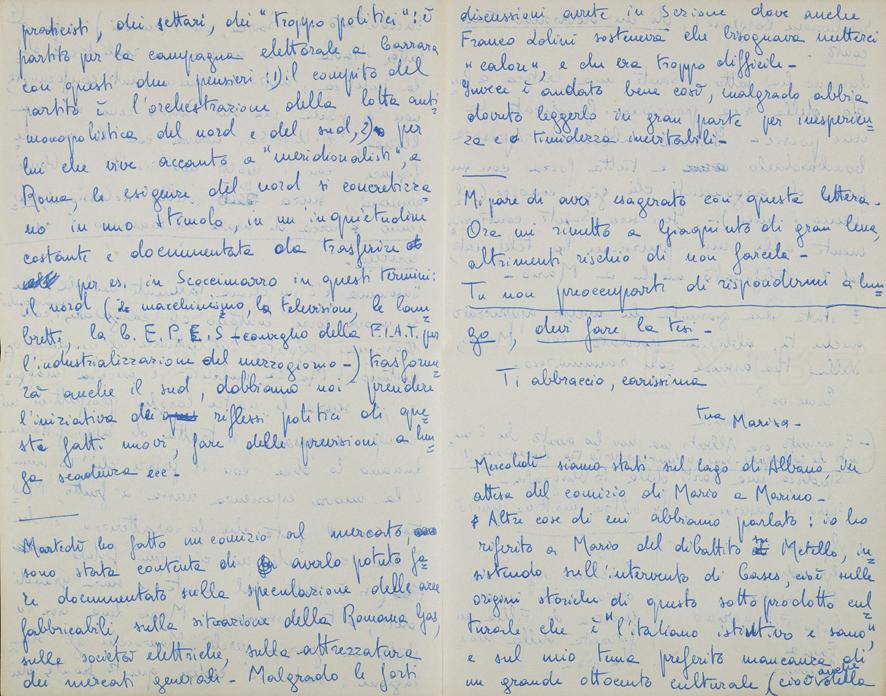 praticisti, dei settari, dei "troppo politici": è
partito per la campagna elettorale a Carrara
con questi due pensieri: 1) il compito del
partito è l'orchestrazione della lotta anti=
monopolistica del nord e del sud, 2) per
lui che vive accanto a "meridionalisti", a
Roma, le esigenze del nord si concretizza=
no in uno stimolo, in un'inquietudine
costante e documentata da trasferire
per es. in Scoccimarro in questi termini:
il nord (il macchinismo, la televisione, le lam=
brette, la C.E.P.E.S - convegno della F.I.A.T. per
l'industrializzazione del mezzogiorno -) trasforme=
rà anche il sud, dobbiamo noi prendere
l'iniziativa dei riflessi politici di que=
sti fatti nuovi, fare delle previsioni a lun=
ga scadenza ecc -
Martedì ho fatto un comizio al mercato
sono stata contenta di averlo potuto fa=
re documentato sulla speculazione delle aree
fabbricabili, sulla situazione della Romana Gas,
sulle società elettriche, sulla attrezzatura
dei mercati generali - Malgrado le forti
discussioni avute in Sezione dove anche
Franco sosteneva che bisognava metterci
"calore", e che era troppo difficile -
Invece è andato bene così, malgrado abbia
dovuto leggerlo in gran parte per inesperien=
za e timidezza inevitabili -
Mi pare di aver esagerato con questa lettera -
Ora mi rimetto a Giaquinto di gran lena,
altrimenti rischio di non farcela -
Tu non preoccuparti di rispondermi a lun=
go, devi fare la tesi -
Ti abbraccio, carissima
tua
Marisa -
Mercoledì siamo stati sul lago di Albano, in
attesa del comizio di Mario a Marino -
Altre cose di cui abbiamo parlato: io ho
riferito a Mario del dibattito su Metello, in=
sistendo sull'intervento di Cases, cioè sulle
origini storiche di questo sottoprodotto cul=
turale che è "l'italiano istintivo e sano",
e sul mio tema preferito mancanza di
un grande ottocento culturale (cioè anche della